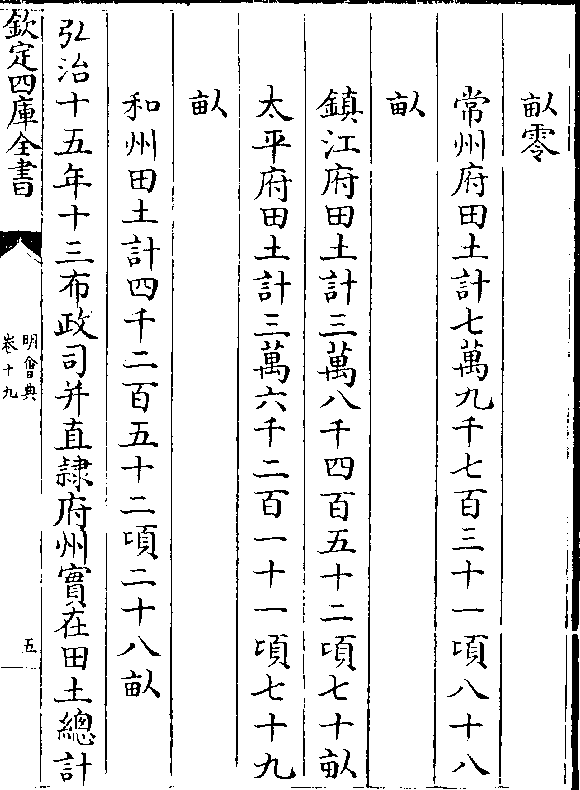 畝零
常州府田土計七萬九千七百三十一頃八十八
畝
鎮江府田土計三萬八千四百五十二頃七十畝
太平府田土計三萬六千二百一十一頃七十九
畝
和州田土計四千二百五十二頃二十八畝
弘治十五年十三布政司并直隷府州實在田土總計
欽定四庫全書
明會典
卷十九
五